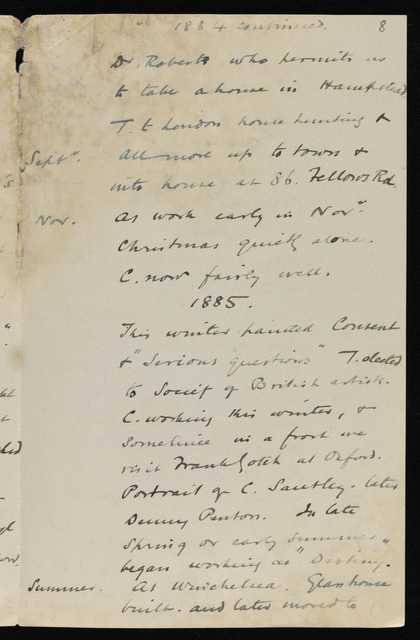 1884 continued. 8
Dr. Roberts who permits us
to take a house in Hampstead
T. to London house hunting &
Septr. all move up to town &
into house at 86. Fellows Rd.
Nov. as work early in Novr.
Christmas quietly alone.
C. now fairly well.
1885.
This winter painted Consent
& "Serious questions" T. elected
to Society of British artists.
C. working this winter, &
sometime in a frost we
visit Frank Gotch at Oxford.
Portrait of C. Santley. later
Penton. In late
Spring or early summer
began working at "Destiny."
Summer. At Winchelsea. Glass house
built. and later moved to